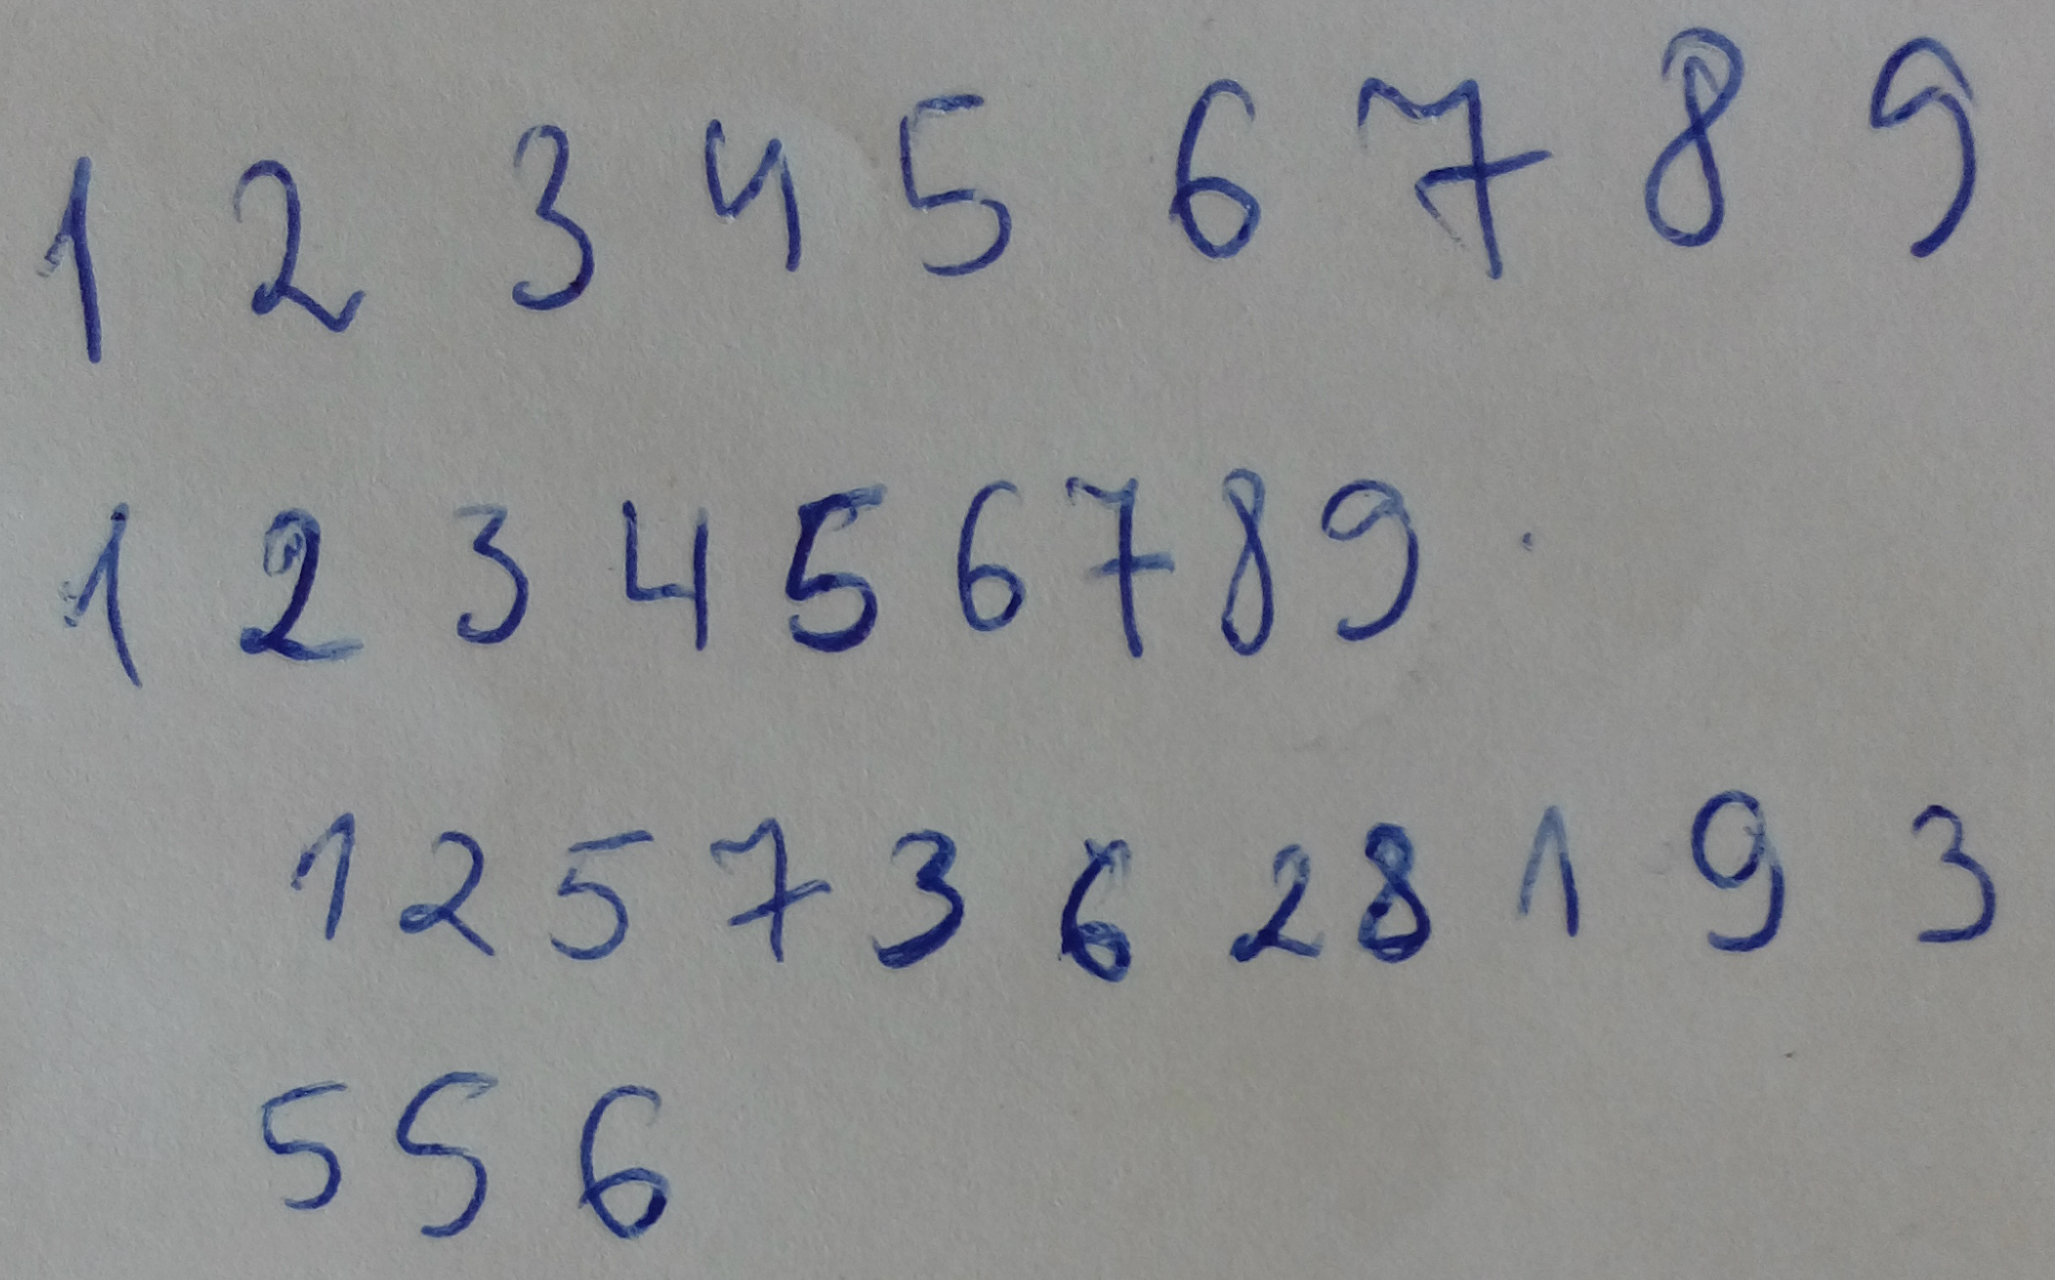 1 2 3 4 5 6 7 8 9
1 2 3 4 5 6 7 8 9
1 2 5 7 3 6 2 8 1 9 3
5 5 6